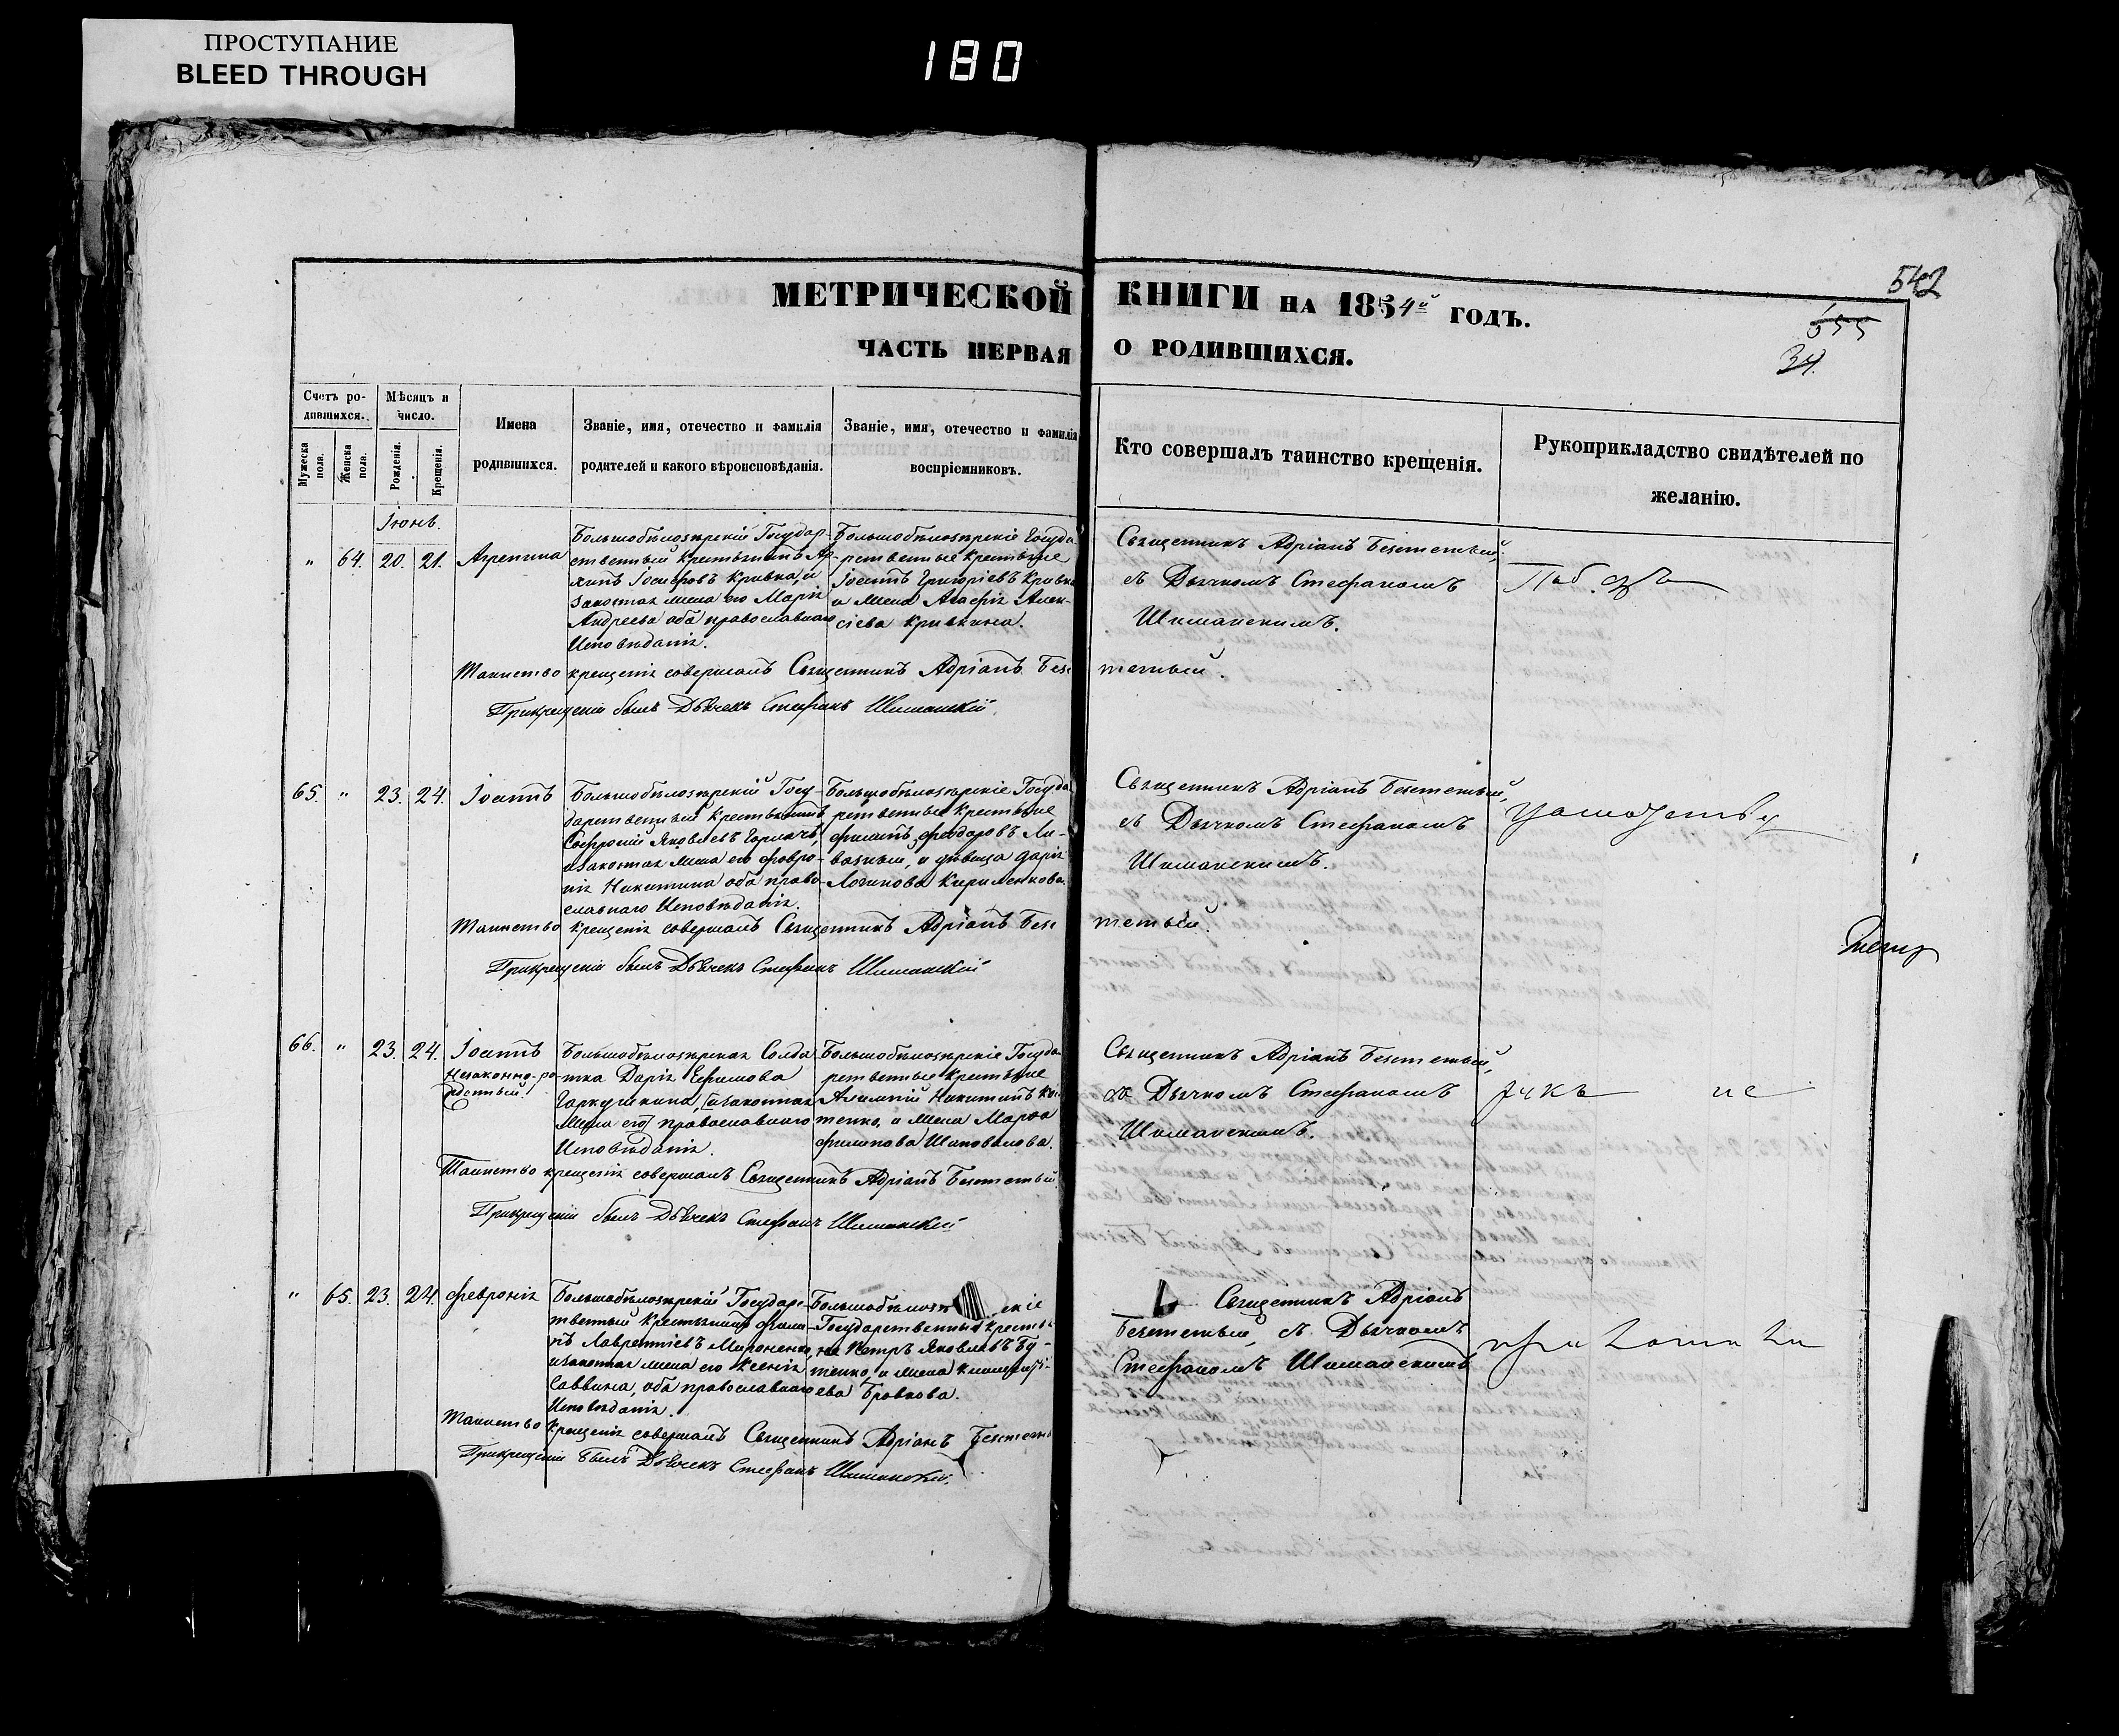 ПРОСТУПАНИЕ
BLEED THROUGH
180
МЕТРИЧЕСКОЙ КНИГИ НА 1854й ГОДЪ.
542
34.
ЧАСТЬ ПЕРВАЯ О РОДИВШИХСЯ.
Счетъ родившихся.
Мужеска пола.
Женска пола.
Мѣсяцъ и число.
Рожденія.
Крещенія.
Имена родившихся.
Званіе, имя, отечество и фамилія родителей и какого вѣроисповѣданія.
Званіе, имя, отечество и фамилія воспріемниковъ.
Кто совершалъ таинство крещенія.
Рукоприкладство свидѣтелей по желанію.
Іюнь.
" 64. 20. 21. Агрепина
Большобѣлозѣрскій Государ-
ственный крестьянинъ Ар-
хипъ Іосифовъ Кривка, и
законная жена его Марія
Андреева оба православнаго
Исповѣданія.
Большобѣлозѣрскіе Госуда-
рственные крестьяне
Іоаннъ Григоріевъ Кривка
и жена Агафія Алек-
сіева Кривкина.
Священникъ Адріанъ Безстетный,
съ Дьячкомъ Стефаномъ
Шиманскимъ.
Таинство крещенія совершалъ Священникъ Адріанъ Безстетный.
Прикрещеніи былъ Дьячекъ Стефанъ Шиманскій
65. " 23. 24. Іоаннъ
Большобѣлозѣрскій Госу-
дарственный крестьянинъ
Софроній Яковлевъ Горлачъ,
изаконная жена его Февро-
нія Никитина оба право-
славнаго Исповѣданія.
Большобѣлозѣрскіе Госуда-
рственные крестьяне
Филипъ Феодоровъ Ли-
вазный, и дѣвица Дарія
Логинова Кириленкова.
Священникъ Адріанъ Безстетный,
съ Дьячкомъ Стефаномъ
Шиманскимъ.
Таинство крещенія совершалъ Священникъ Адріанъ Безстетный.
Прикрещеніи былъ Дьячекъ Стефанъ Шиманскій
66. " 23. 24. Іоаннъ
незаконно-ро-
жденный.
Большобѣлозѣрская Солда-
тка Дарія Ефимова
Гаркушкина, [изаконная
жена его] православнаго
Исповѣданія.
Большобѣлозѣрскіе Госуда-
рственные крестьяне
Алимпій Никитинъ
тенко, и жена Марфа
Филипова Шаповалова.
Священникъ Адріанъ Безстетный,
съ Дьячкомъ Стефаномъ
Шиманскимъ.
Таинство крещенія совершалъ Священникъ Адріанъ Безстетный.
Прикрещеніи былъ Дьячекъ Стефанъ Шиманскій
" 65. 23. 24. Февронія
Большобѣлозѣрскій Государс-
твенный Крестьянинъ Фили-
пъ Лаврентіевъ Мироненко,
изаконная жена его Ксенія
Саввина, оба православнаго
Исповѣданія.
Большобѣлозѣ скіе
Государственные крестья-
не Петръ Яковлевъ Бу-
тенко, и жена
ева Бровкова.
Священникъ Адріанъ
Безстетный, съ Дьячкомъ
Стефаномъ Шиманскимъ
Таинство крещенія совершалъ Священникъ Адріанъ Безстетн
Прикрещеніи былъ Дьячекъ Стефанъ Шиманскій.